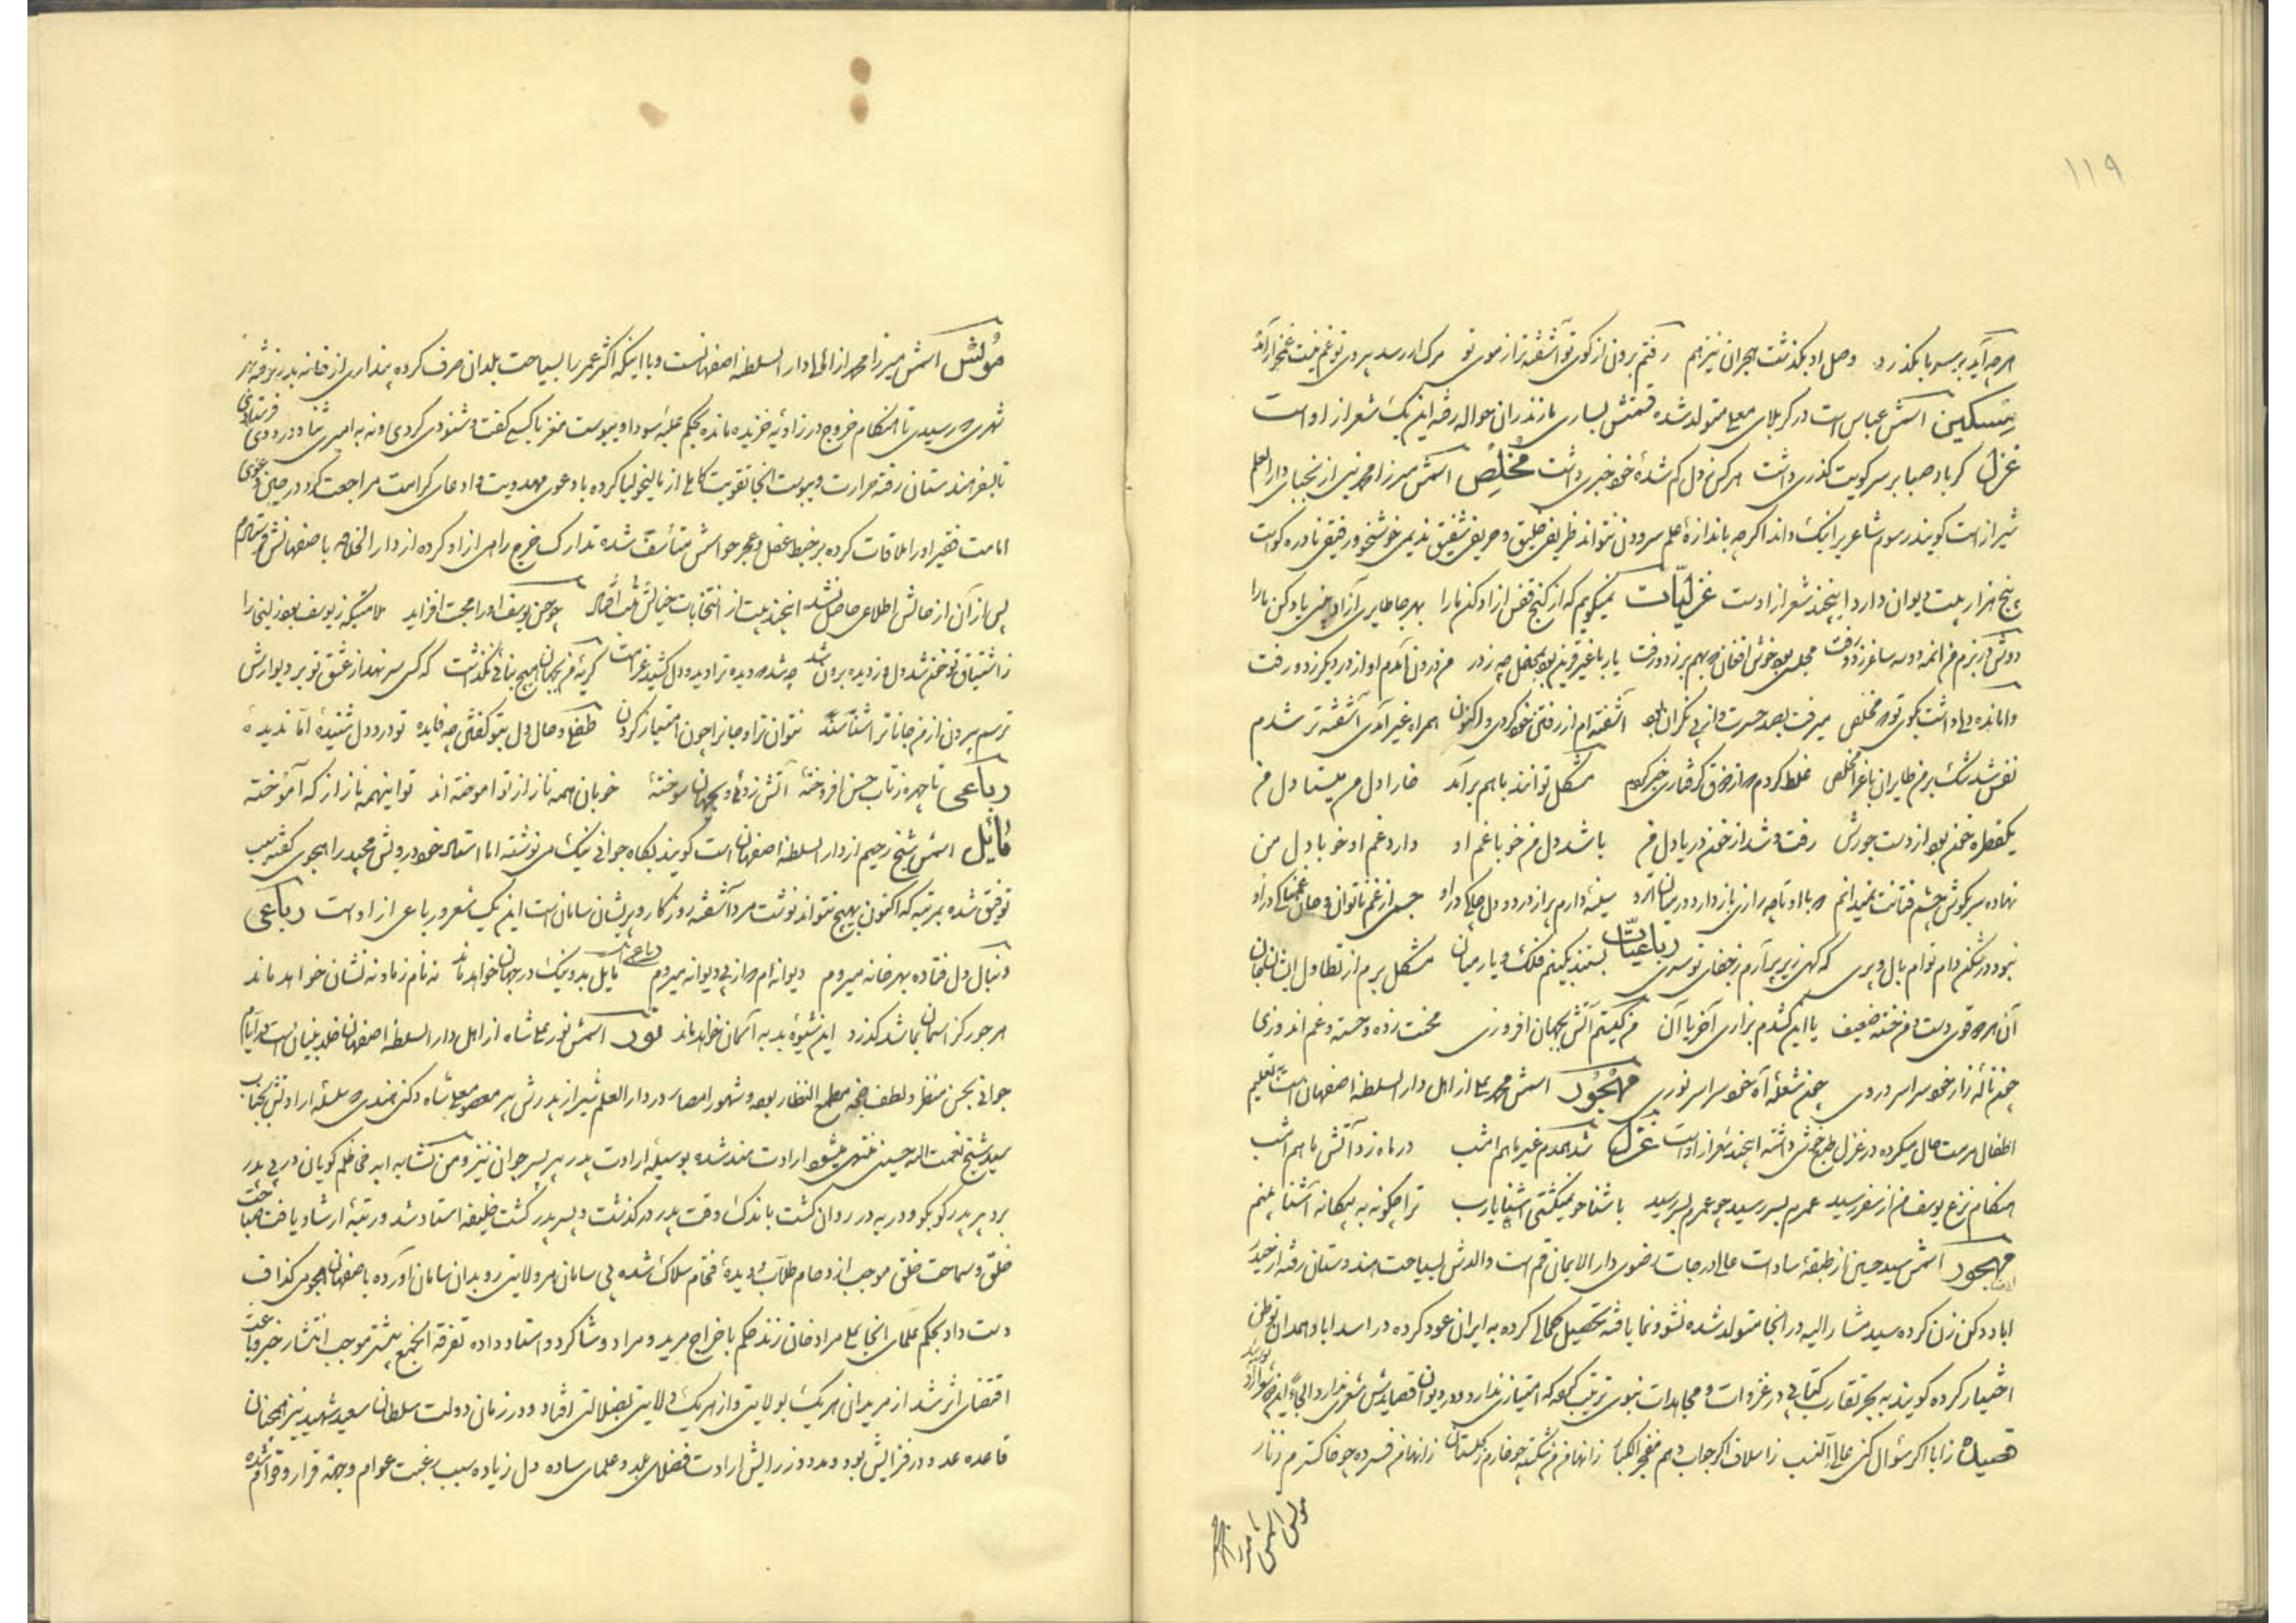 ۱۱۹
هر چه آید بر سر ما بگذرد وصل او بگذشت هجران نیز هم رفتم برون از کوی تو آشفته‌تر از موی تو
مسکین اسمش عباس است در کربلای معلی متولد شده قسمتش بساری مازندران حواله رفته این یک شعر از او است
غزل گر باد صبا بر سر کویت گذری داشت هر کس ز دل گم شدهٔ خود خبری داشت مخلص اسمش میرزا محمد از نجبای دار العلم
شیراز است گویند رسوم شاعری را نیک داند اگر چه باندازهٔ علم سرودن نتواند ظریفی خلیق و حریفی شفیق ندیمی خوشخو و رفیقی نادره گو است
پنج هزار بیت دیوان دارد اینچند شعر از اوست غزلیات نمیگویم که از کنج قفس آزاد کن ما را بهر جا طایری آزاد بینی یاد کن ما را
دوش در بزم من آمد دو سه ساغر زد و رفت مجلسی بود خوش افغان که بهم بر زد و رفت یا رب من درون آمدم او از در دیگر زد و رفت
وامانده دلی داشت بکوی تو مخلص میرفت بصد حسرت و از پی نگران بود آشفته‌ام از رفتن خود کردی و اکنون همراه غیر آمدی آشفته‌تر شدم
قفس شد تنگ بر من طایران باغ را مخلص غلط کردم که از ذوق گرفتاری خبر کردم مشکل توانند با هم برآمد خارا دل من مینا دل من
یکقطره خون بود از دست جورش رفت و شد از خون دریا دل من باشد دل من خو با غم او دارد غم او خو با دل من
نهاده سر بگوش چشم فتانت نمیدانم که با او تا چه رازی باز دارد در میان ابرو سینهٔ دارم پر از درد و دل جسمی از غم ناتوان و جان غمناکی در او
نبود در شکن دام توام بال و پری که گهی زیر پر آرم ز جفای تو سری رباعیات بستند بکینم فلک و یار میان مشکل برم از تطاول ایشان جان
آن هر دو قوی دست و من خسته ضعیف یا این کشدم بزاری آخر یا آن من کیستم آتش بجهان افروزی محنت زده و خسته و غم اندوزی
چون ناله زار خود سراسر دردی چون شعله آه خود سراسر نوری مهجور اسمش محمد علی از اهل دار السلطنه اصفهان است تعلیم
اطفال مرمت حال میکرده در غزل طرح خوشی داشته اینچند شعر از اوست غزل شد همدم غیر ماهم امشب در ماه زد آتش ما هم امشب
هنگام نزع یوسف من از سفر رسید عمرم بسر رسید چو عمرم بسر رسید با شناخو نمیگشتی آشنا یا رب ترا چگونه به بیگانه آشنا بینم
مهجور اسمش سید حسین از طبقهٔ سادات عالی درجات رضوی دار الایمان قم است والدش بسیاحت هندوستان رفته از حیدر
اباد دکن زن کرده سید مشار الیه در آنجا متولد شده نشو و نما یافته تحصیل کمالی کرده به ایران عود کرده در اسداباد همدان توطن
اختیار کرده گویند به بحر تقارب کتابی در غزوات و مجاهدات نبوی ترتیب کرده که امتیازی ندارد و در دیوان قصایدش شعری ندارد
قصیده ز ابا اگر سؤال کنی عالی النسب ز اسلاف اگر جواب دهم مفخر الکبار ز آنها منم شکسته چو خارم ز گلستان ز آنها منم فسرده چو خاکسترم ز نار
مونس اسمش میرزا محمد
مونس اسمش میرزا محمد از اهالی دار السلطنه اصفهانست و با اینکه اکثر عمر را بسیاحت بلدان صرف کرده پنداری از خانه بدر نرفته بهر
شهری که رسیدی تا هنگام خروج در زاویهٔ خزیده مانده بحکم غلبه سودا و یبوست مغز با کسی گفت و شنودی نکردی و نه به امیری ثنا و درودی فرستادی
تا بسفر هندوستان رفته حرارت و یبوست آنجا تقویت کامل از مالیخولیا کرده با دعوی مهدویت و ادعای کرامت مراجعت کرد در حین دعوی
امامت فقیر او را ملاقات کرده بر خبط عقل و عجز حواسش متأسف شده تدارک خرج راهی از او کرده از دار الخلافه باصفهانش فرستادم
پس از آن از حالش اطلاعی حاصل نشد اینچند بیت از انتخابات خیالش ثبت افتاد چو حسن یوسف او را محبت افزاید ملامتیکه ز یوسف بود زلیخا را
ز اشتیاق تو خون شد دل و ز دیده برون شد چه شد که دیده ترا دید و دل کشید غرامت گریهٔ من بجهان هیچ بنائی نگذشت که کسی سر نهد از عشق تو بر دیوارش
ترسم بیرون از من جانا نشناسند نتوان ترا و جان را چون امتیاز کردن طفلی و حال دل بتو گفتن چه فایده تو درد دل شنیدهٔ اما ندیدهٔ
رباعی تا چهره ز تاب حسن افروختهٔ آتش زدهٔ و جهان سوختهٔ خوبان همه ناز از تو آموخته‌اند تو اینهمه ناز از که آموختهٔ
مایل اسمش شیخ رحیم از دار السلطنه اصفهان است گویند بگاه جوانی نیک می نوشته اما استاد خود درویش مجید را هجوی گفته سبب
توفیق شده بمرتبه که اکنون بهیچ نتواند نوشت مرد آشفته روزگار و پریشان سامان است این یک شعر و رباعی از او است رباعی
دنبال دل فتاده بهر خانه میروم دیوانه‌ام که از پی دیوانه میروم رباعی مایل بد و نیک در جهان خواهد ماند نه نام ز ما و نه نشان خواهد ماند
هر جور کز آسمان بما شد گذرد این شیوهٔ بد به آسمان خواهد ماند نور اسمش نور علی شاه از اهل دار السلطنه اصفهان خلد بنیان است در ایام
جوانی بحسن منظر و لطف مخبر مطمح انظار بوده و مشهور امصار در دار العلم شیراز پدرش پیر معصوم علی شاه دکنی هندی که سلسله ارادتش بجناب
سید شیخ نعمت الله حسینی منتهی میشود ارادت مند شده بوسیلهٔ ارادت پدر پیر پسر جوان نیز کویان در پی پدر
برد پیر پدر کو بکو و در به در روان گشت با اندک وقت پدر درگذشت و پسر پدر گشت خلیفه استاد شد و رتبهٔ ارشاد یافت
خلق و سماحت خلق موجب ازدحام طلاب دیدهٔ سلاک شده پی سامان هر ولایتی رو بدان سامان آورده باصفهان هجوم گذاف
دست داد بحکم علمای آنجا علی مراد خان زند حکم باخراج مرید و مراد و شاگرد و استاد داده تفرقه آنجمع بیشتر موجب انتشار خبر و باعث
اقتضای اثر شد از مریدان هر یک بولایتی و از هر یک ولایتی بضلالتی افتاد و در زمان دولت سلطان سعید شهید نیز همچنان
قاعده عدد در فزایش بود و مدد در زایش ارادت فضلای بلد و علمای ساده دل زیاده سبب رغبت عوام و جهة قرار و قوام شده